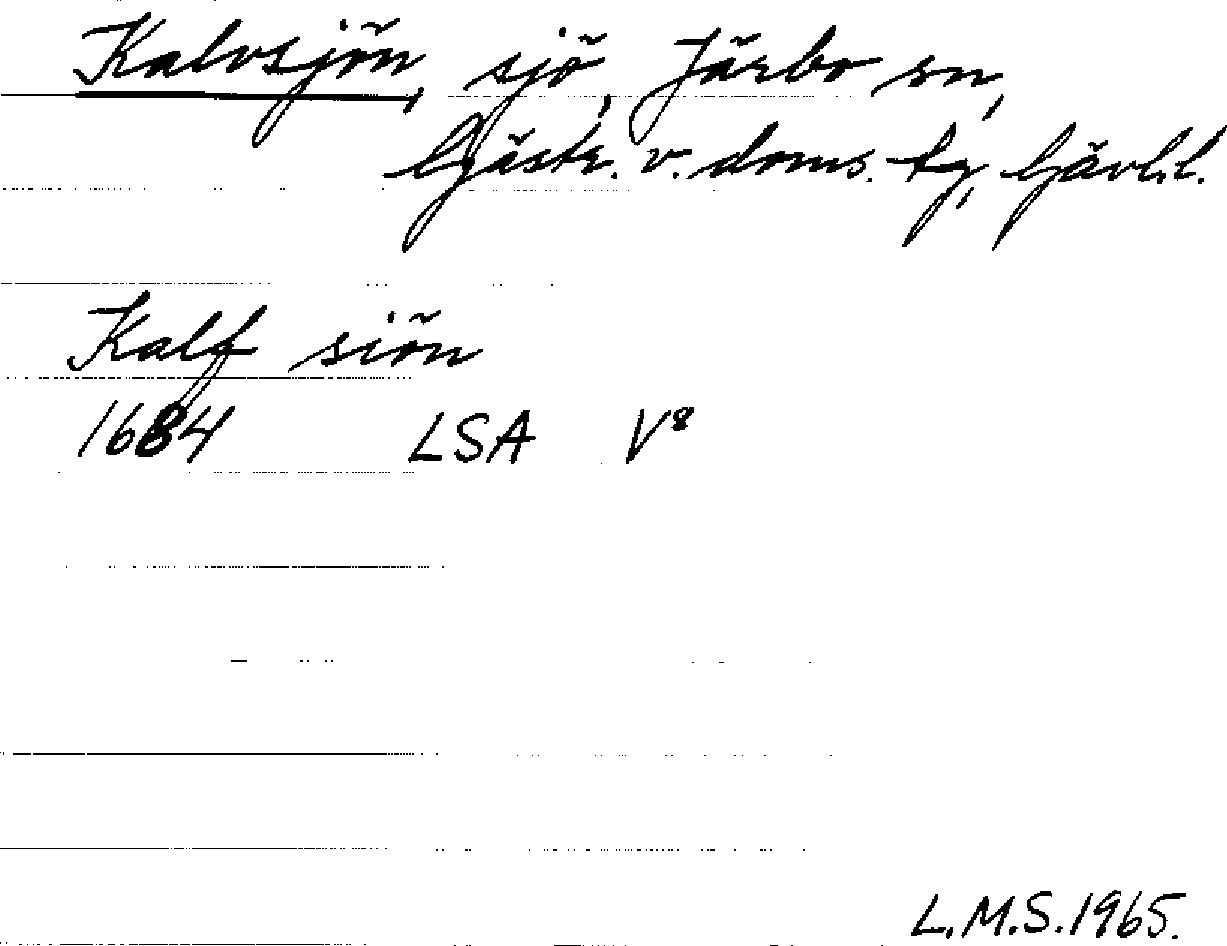 Kalvsjön, sjö, Järbo sn,
Gästr. v. doms. tg, Gävl.l.
Kalf siön
1684 LSA V⁸
L.M.S. 1965.